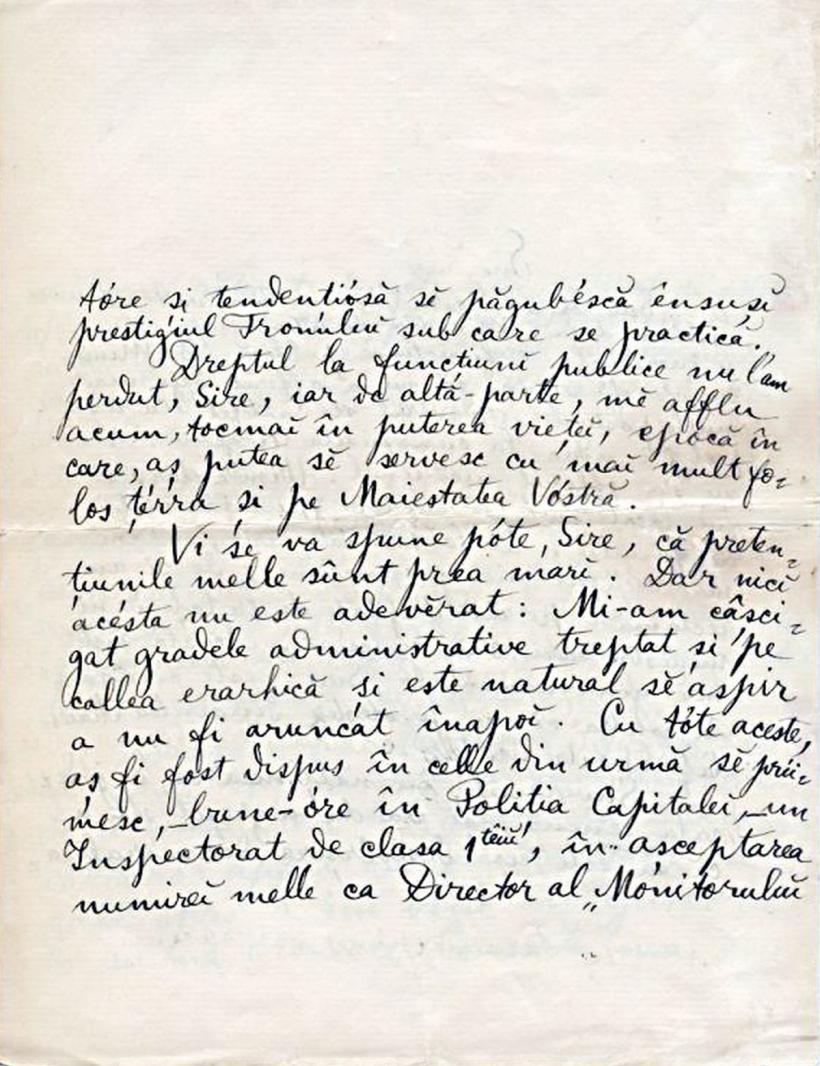 tóre și tendentiósă sĕ păgubéscă ênsuși
prestigiul Tronuluĭ sub care se practică.
Dreptul la funcțiunĭ publice nu l'am
perdut, Sire, iar de altă-parte, mĕ afflu
acum, tocmaĭ în puterea viețeĭ, epocă în
care, aș putea sĕ servesc cu maĭ mult fo-
los țérra și pe Maiestatea Vóstră.
Vi se va spune póte, Sire, că preten-
țiunile melle sûnt prea marĭ. Dar nicĭ
acésta nu este adevĕrat: Mi-am câsci-
gat gradele administrative treptat și pe
callea erarhică și este natural sĕ aspir
a nu fi aruncat înapoĭ. Cu tóte aceste,
aș fi fost dispus în celle din urmă sĕ prii-
mesc, – bune-óre în Politia Capitaleĭ, – un
Inspectorat de clasa 1têiŭ, în asceptarea
numireĭ melle ca Director al „Monitoruluĭ